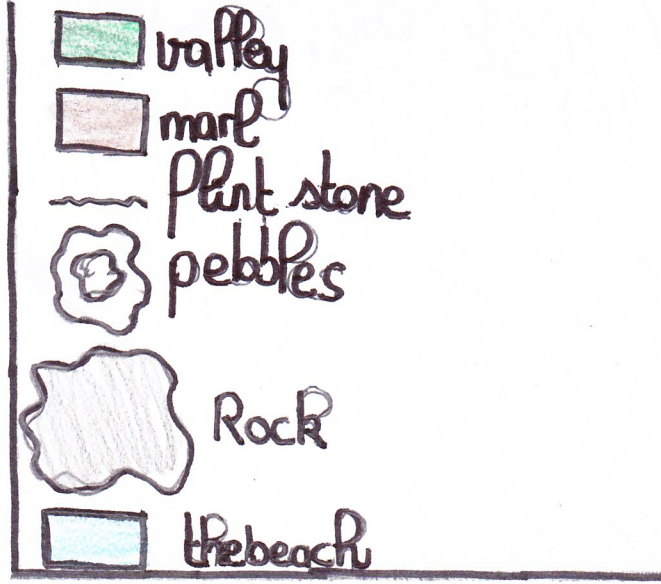 valley
marl
flint stone
pebbles
Rock
thebeach